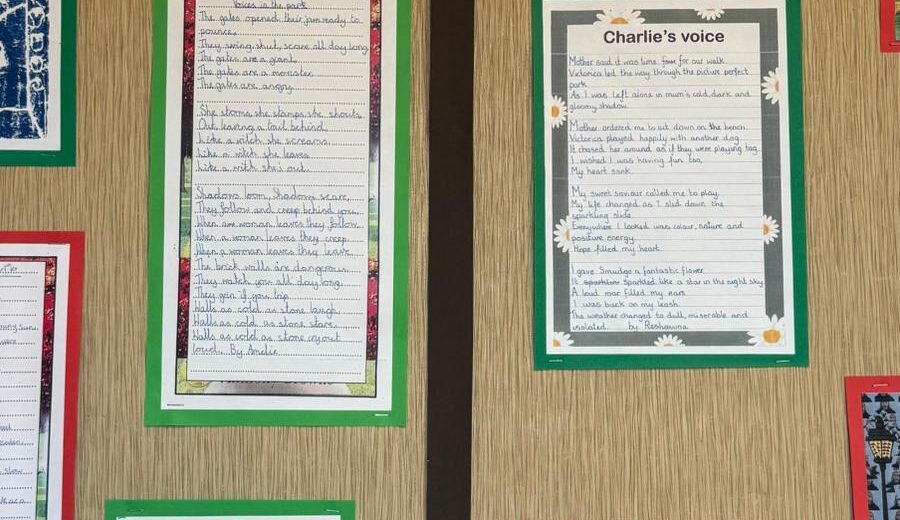 Voices in the park
The gates opened their jaws ready to
pounce.
They swing shut, scare all day long.
The gates are a giant.
The gates are a monster.
The gates are angry.
She storms, she stamps, she shouts.
Out, leaving a trail behind.
Like a witch she screams.
Like a witch she leaves.
Like a witch she's out.
Shadows loom, Shadows scare,
They follow and creep behind you.
When a woman leaves they follow.
When a woman leaves they creep.
When a woman leaves they leave.
The brick walls are dangerous.
They watch you all day long.
They grin if you trip.
Walls as cold as stone laugh.
Walls as cold as stone stare.
Walls as cold as stone cry out
loud. By Amelie
Charlie's voice
Mother said it was time for our walk.
Victorica led the way through the picture perfect
park.
As I was left alone in mum's cold, dark and
gloomy shadow.
Mother ordered me to sit down on the bench.
Victoria played happily with another dog.
It chased her around as if they were playing tag.
I wished I was having fun too.
My heart sank.
My sweet saviour called me to play.
My life changed as I slid down the
sparkling slide.
Everywhere I looked was colour, nature and
positive energy.
Hope filled my heart.
I gave Smudge a fantastic flower.
It sparkled like a star in the night sky.
A loud roar filled my ears.
I was back on my leash.
The weather changed to dull, miserable and
isolated. by Reshawna